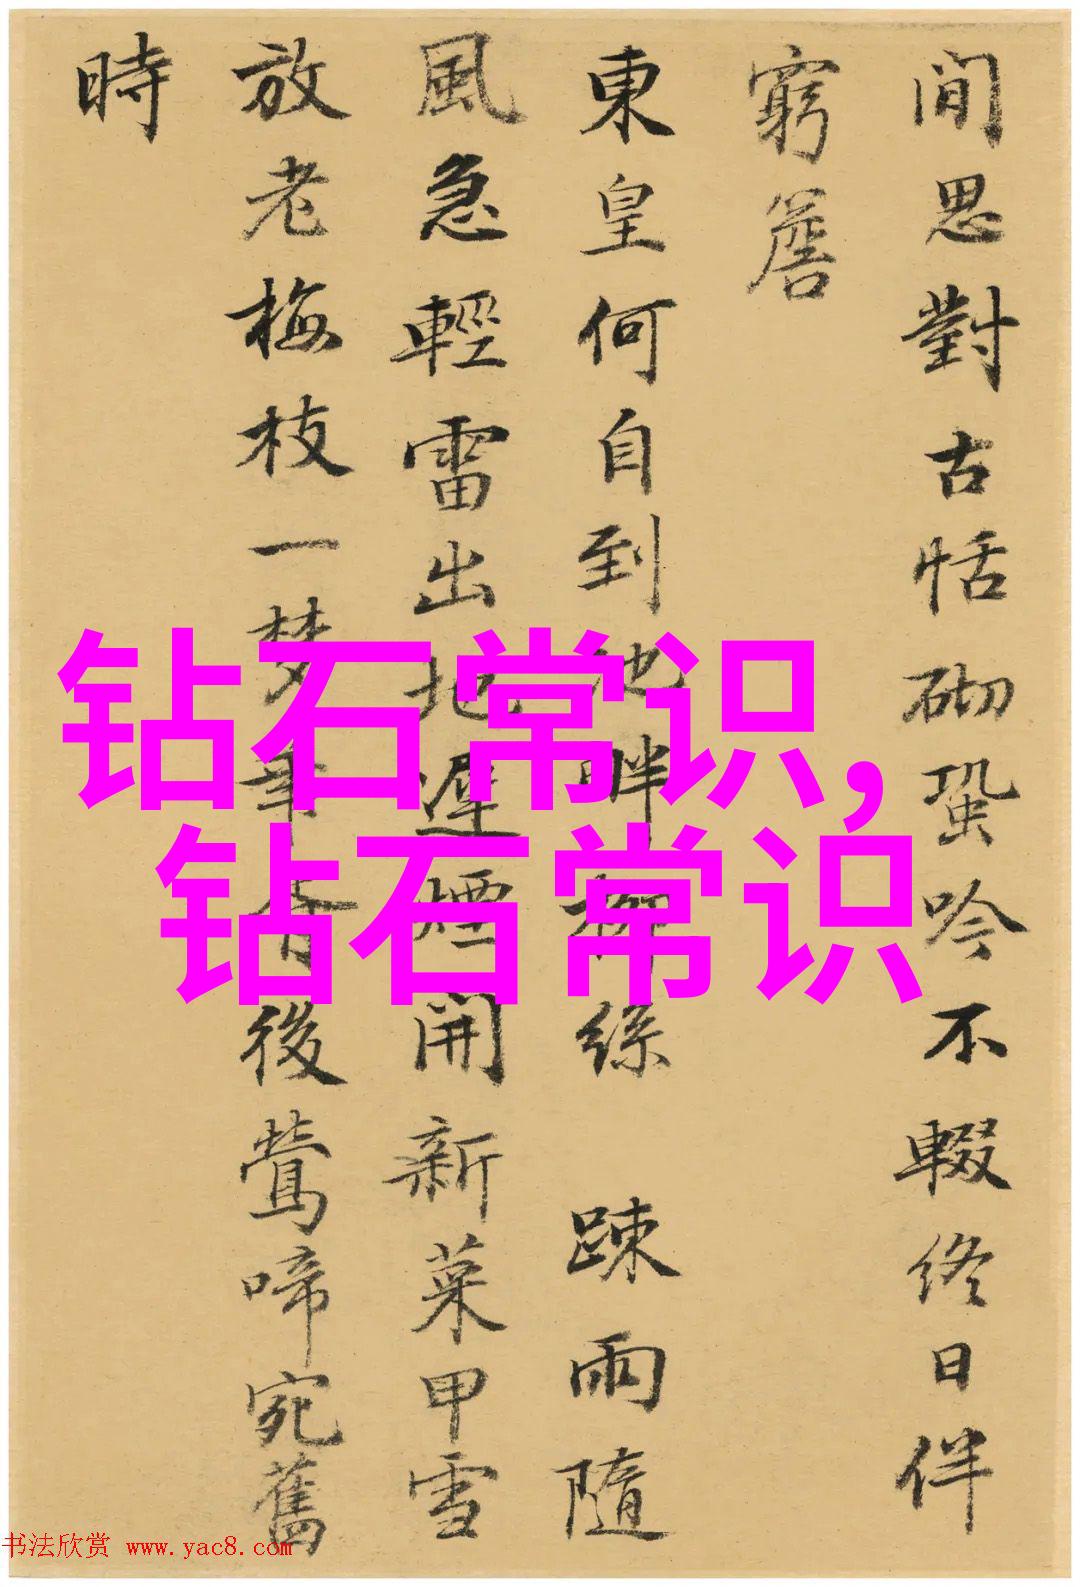 間思對古恬砌蛩吟不輟終日伴
窮簷
東皇何自到池畔柳絲 踈雨隨
風急輕雷出地遲煙開新菜甲雪
放老梅枝一梦華胥後鶯啼宛舊
時
钻石常识,
钻石常识
书法欣赏 www.yac8.com